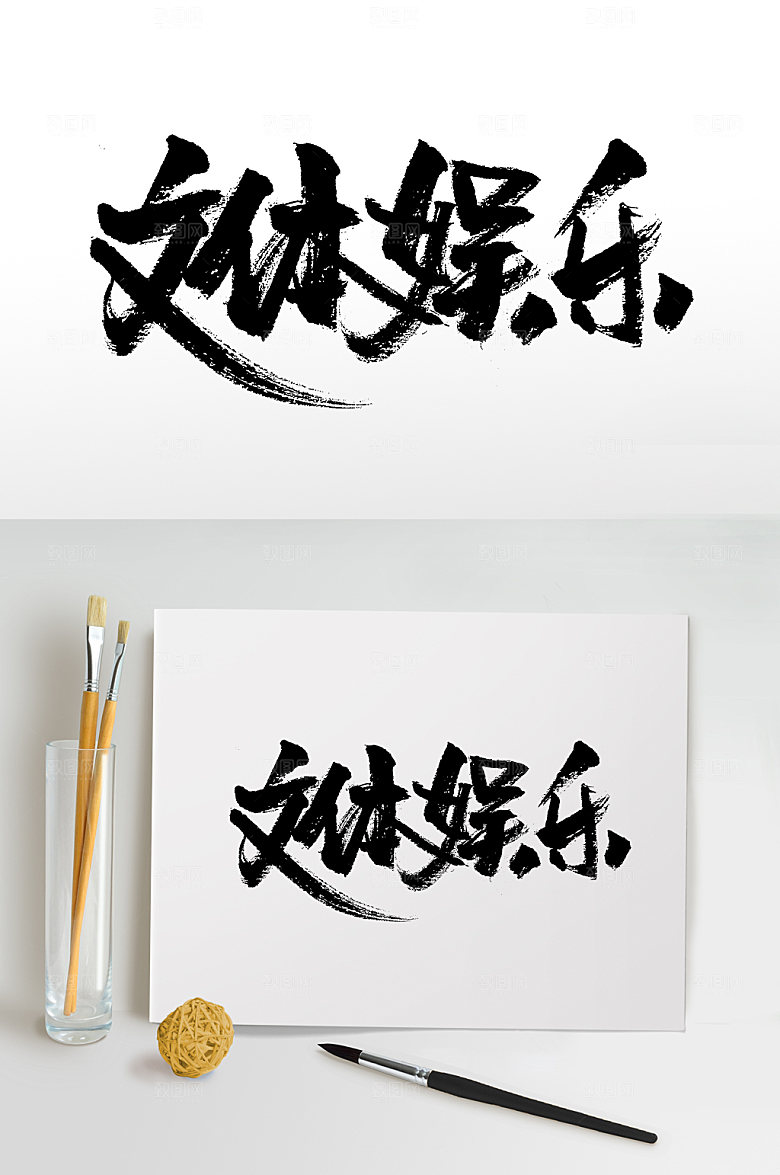 文体娱乐
文体娱乐